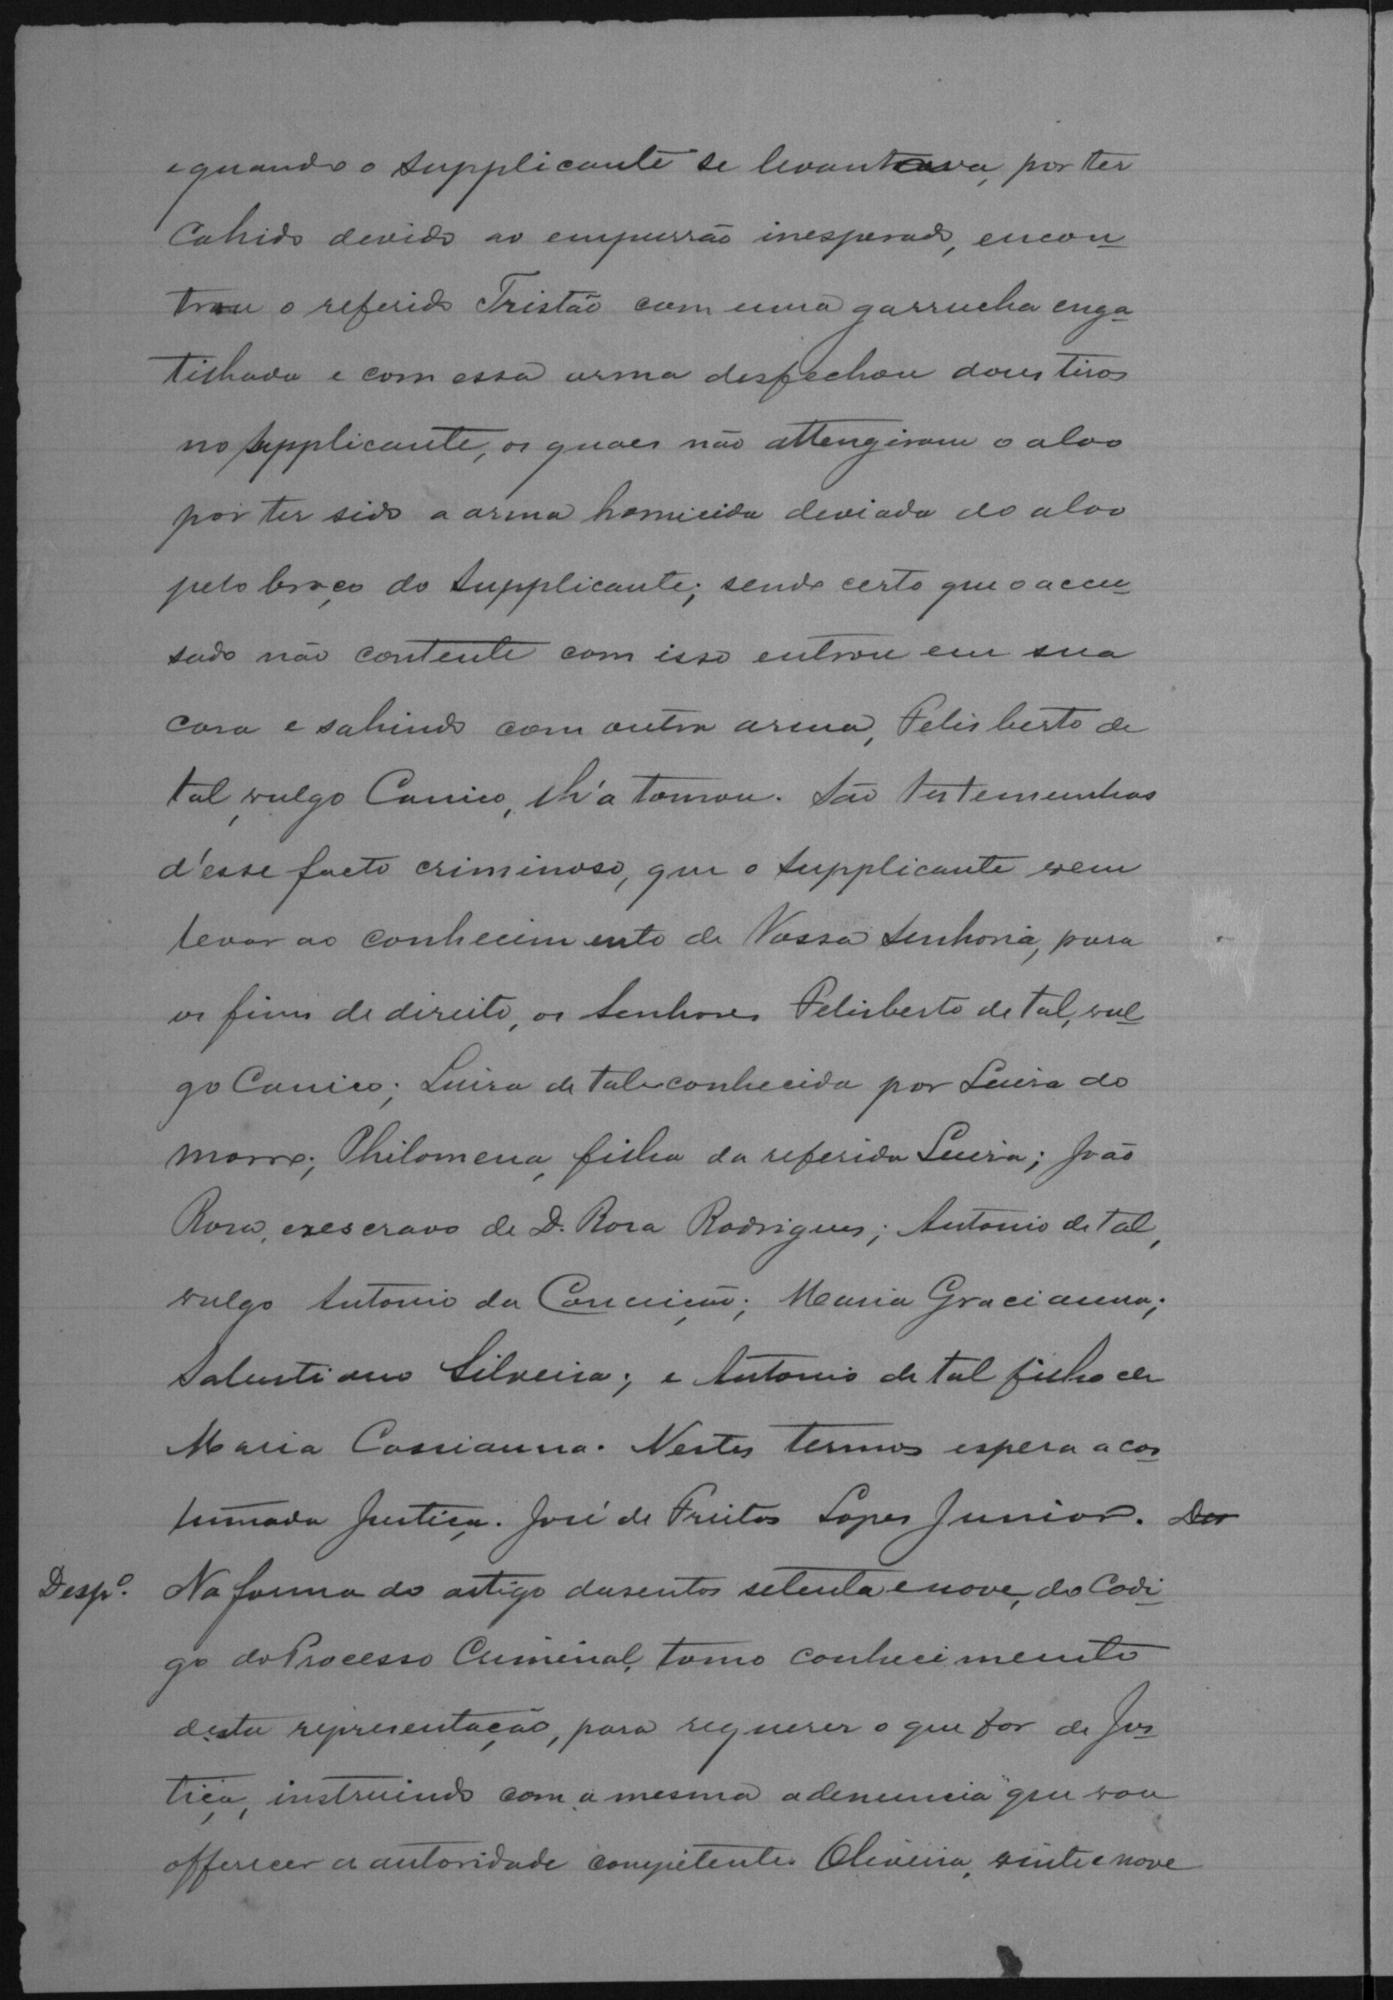 e quando o Supplicante se levantava, por ter
Cahido devido ao empurrão inesperado, encon-
trou o referido Tristão com uma garrucha enga-
tilhada e com essa arma desfechou dous tiros
no Supplicante, os quaes não attengiram o alvo
por ter sido a arma homicida deviada do alvo
pelo braço do Supplicante; sendo certo que o accu-
sado não contente com isso entrou em sua
casa e sahindo com outra arma, Felisberto de
tal, vulgo Canico, lh'a tomou. São testemunhas
d'esse facto criminoso, que o Supplicante vem
levar ao conhecimento de Vossa Senhoria, para
os fins de direito, os Senhores Felisberto de tal, vul-
go Canico; Luisa de tal conhecida por Luisa do
morro; Philomena, filha da referida Luisa; João
Rosa, exescravo de D. Rosa Rodrigues; Antonio de tal,
vulgo Antonio da Conceição; Maria Gracianna;
Salustiano Silveira; e Antonio de tal filho de
Maria Cassianna. Nestes termos espera a cos-
tumada Justiça. José de Freitas Lopes Junior. Des
Despo. Na forma do artigo dusentos setenta e nove, do Codi-
go do Processo Criminal, tomo conhecimento
desta representação, para requerer o que for de Jus-
tiça, instruindo com a mesma a denuncia que vou
offerecer a autoridade competente. Oliveira, vinte e nove